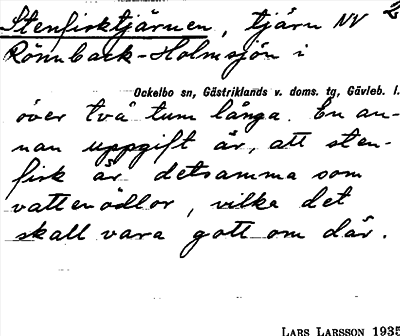 Stenfisktjärnen, tjärn NV 2
Rönnback-Holmsjön i
Ockelbo sn, Gästriklands v. doms. tg, Gävleb. l.
över två tum långa. En an-
nan uppgift är, att sten-
fisk är detsamma som
vattenödlor, vilka det
skall vara gott om där.
LARS LARSSON 1935